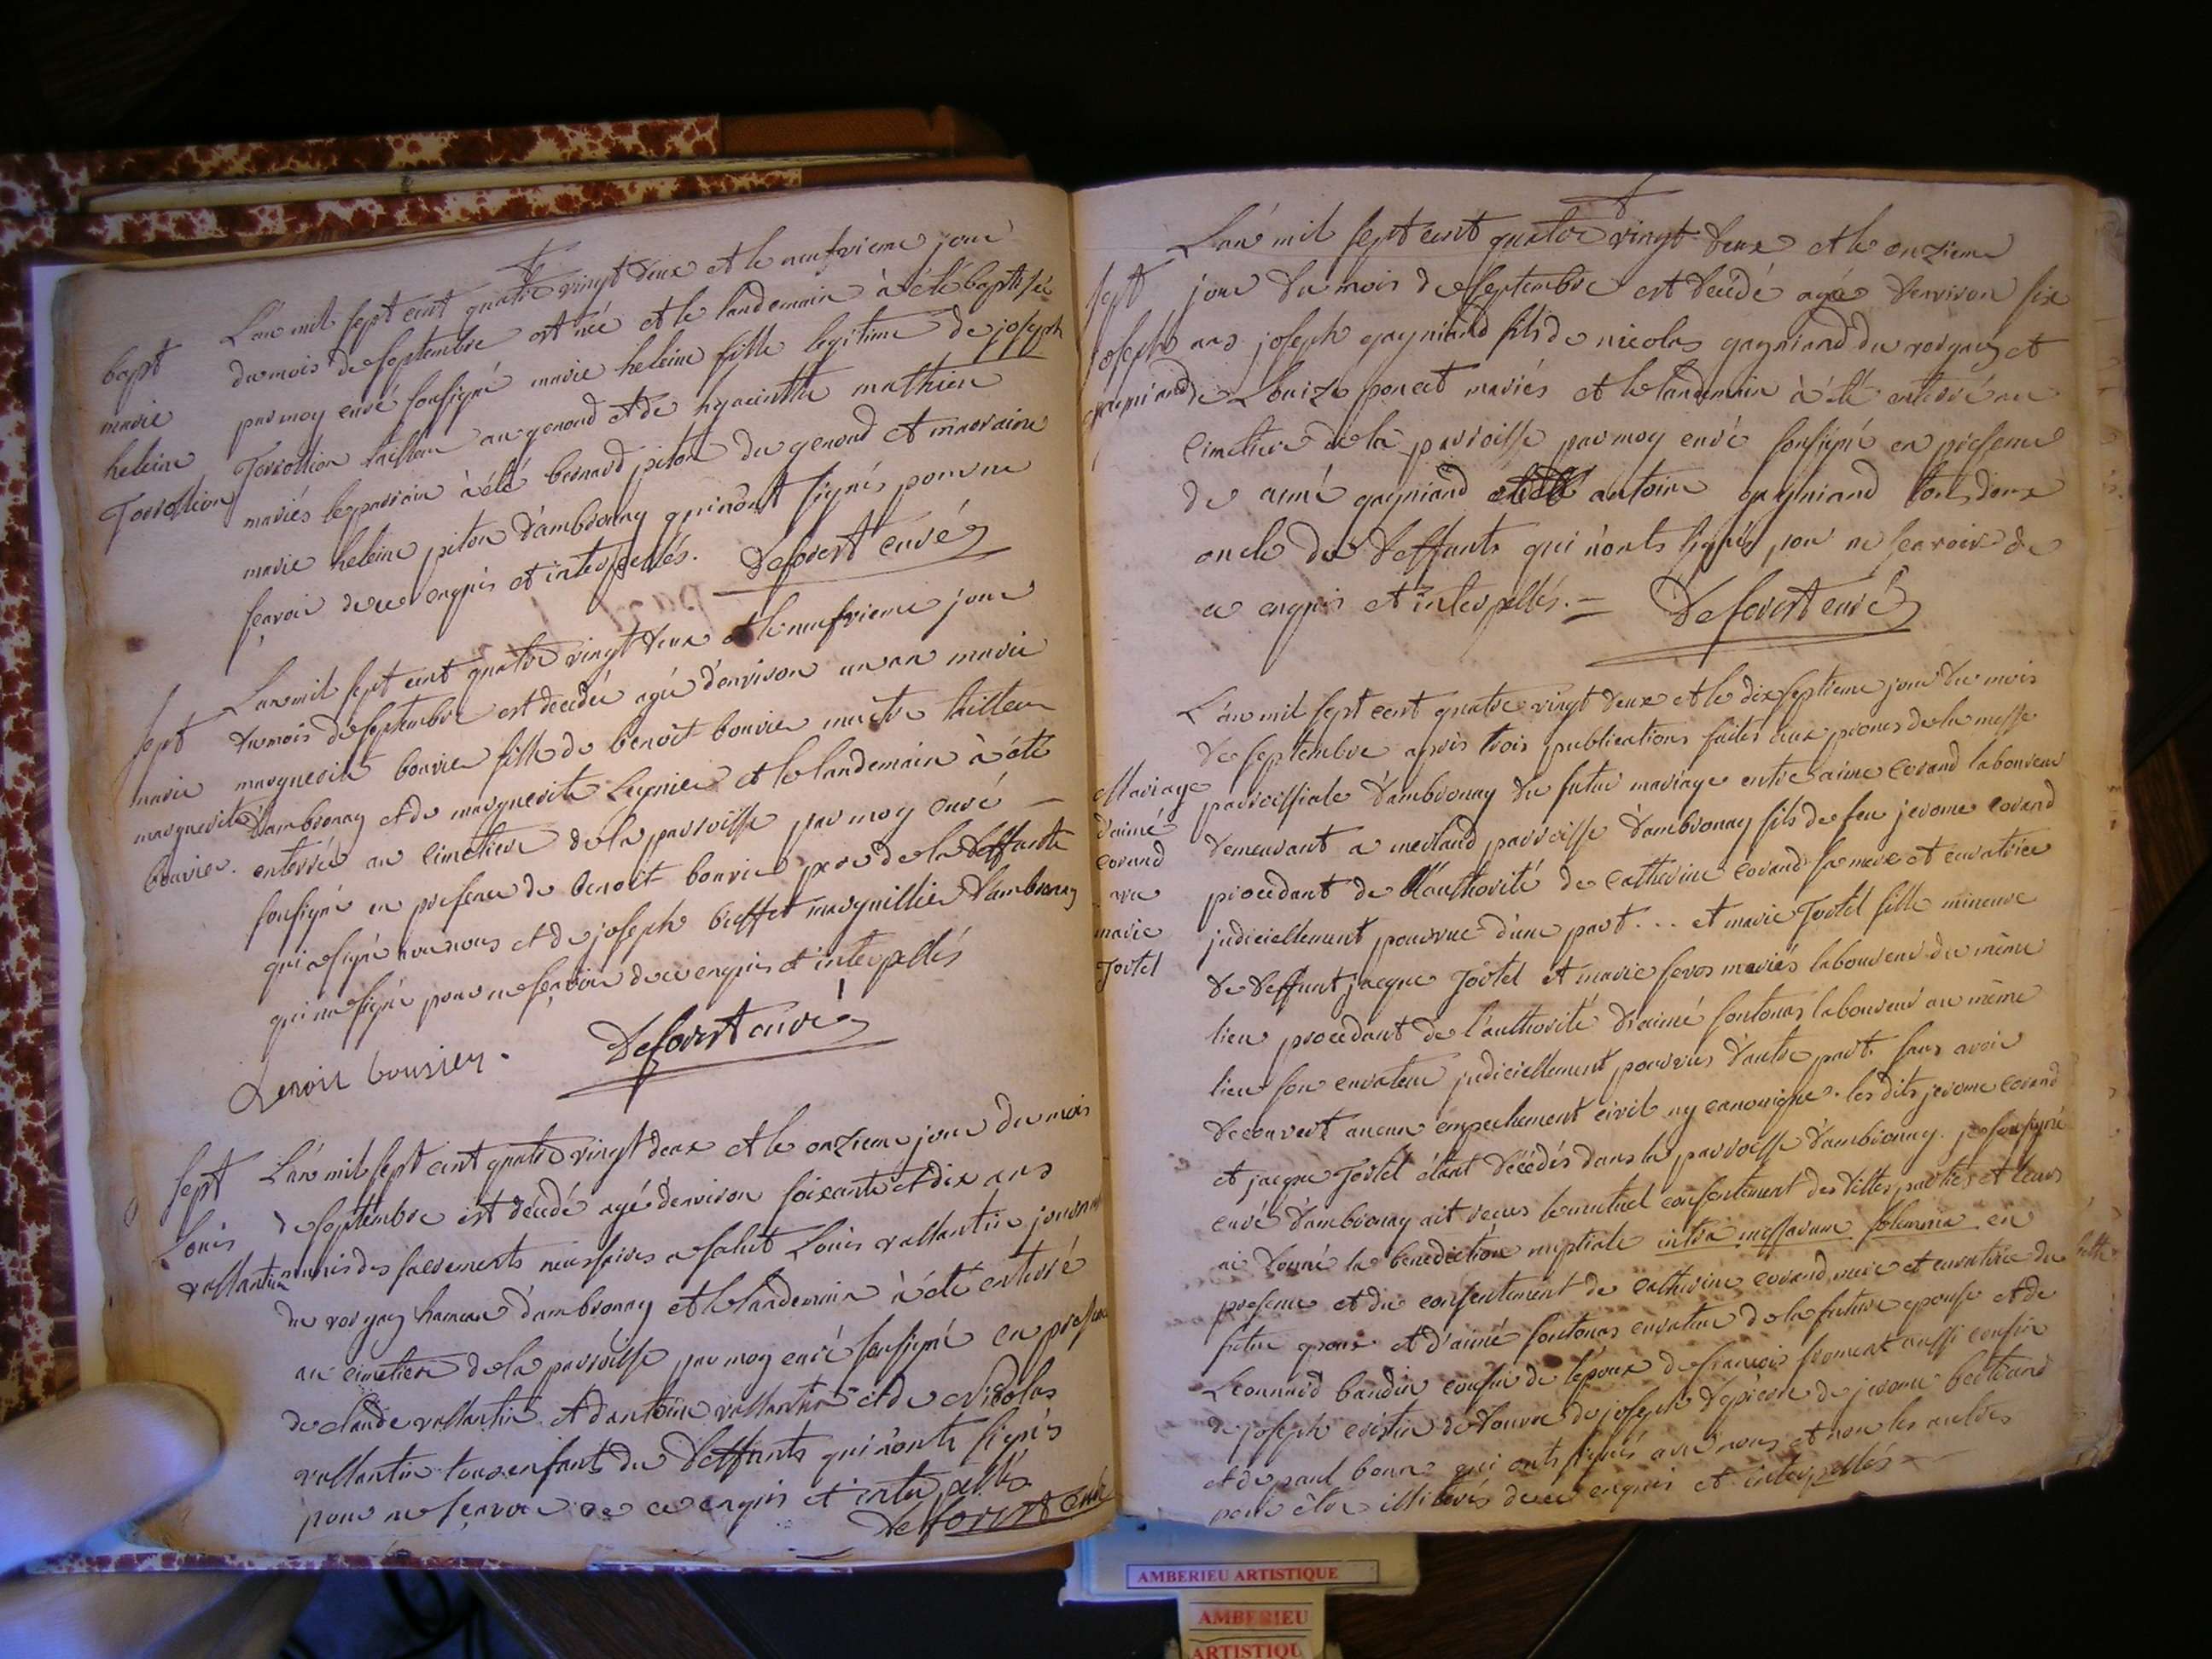 bapt
marie
heleine
Torrollion
L'an mil sept cent quatre vingt deux et le neufvieme jour
du mois de septembre est née et le landemain à été baptisée
par moy curé soussigné marie heleine fille legitime de joseph
Torrollion tisseur au genoud et de hyacinthe mathieu
mariés le parrain à été bernard piton du genoud et marraine
marie heleine piton d'ambronay qui n'ont signés pour ne
sçavoir de ce enquis et interpellés. Deforest curé
sept
marie
marguerite
bouvier.
L'an mil sept cent quatre vingt deux et le neufvieme jour
du mois de septembre est decedée agée d'environ un an marie
marguerite bouvier fille de benoit bouvier maitre tailleur
d'ambronay et de marguerite et le landemain à été
enterrée au cimetiere de la parroisse par moy curé
soussigné en presence de benoit bouvier pere de la deffunte
qui a signé avec nous et de joseph buffet marguillier d'ambronay
qui n'a signé pour ne sçavoir de ce enquis et interpellés
benoit bouvier. Deforest curé
sept
Louis
vallantin
L'an mil sept cent quatre vingt deux et le onzieme jour du mois
de septembre est decédé agé d'environ soixante et dix ans
munis des sacrements necessaires a salut Louis vallantin
du vorgay hameau d'ambronay et le landemain à été enterré
au cimetiere de la parroisse par moy curé soussigné en presence
de claude vallantin et d'antoine vallantin et de Nicolas
vallantin tous enfants du deffunts qui n'onts signés
pour ne sçavoir de ce enquis et interpellés
Deforest curé
sept
joseph
gagniand
L'an mil sept cent quatre vingt deux et le onzieme
jour du mois de septembre est decédé agée d'environ six
ans joseph gagniand fils de nicolas gagniand du vorgay et
de Louize poncet mariés et le landemain à été enterré au
cimetiere de la parroisse par moy curé soussigné en presence
de aimé gagniand antoine gagniand tous deux
oncle du deffunts qui n'onts signés pour ne sçavoir de
ce enquis et interpellés. = Deforest curé
Mariage
d'aimé
corand
avec
marie
Tortel
L'an mil sept cent quatre vingt deux et le dix septieme jour du mois
de septembre après trois publications faites aux prones de la messe
parroissiale d'ambronay du futur mariage entre aimé corand laboureur
demeurant a merland parroisse d'ambronay fils de feu jerome corand
procedant de l'authorité de catherine corand sa mere et curatrice
judiciellement pourvue d'une part ... et marie Tortel fille mineure
de deffunt jacque Tortel et marie mariés laboureur du même
lieu procedant de l'authorité d'aimé fontenas laboureur au même
lieu son curateur judiciellement pourvus d'autre part. sans avoir
decouvert aucun empechement civil ny canonique. les dits jerome corand
et jacque Tortel étant décédés dans la parroisse d'ambronay. je soussigné
curé d'ambronay ait reçus le mutuel consentement des dittes parties et leurs
ai donné la benediction nuptiale intra missarum solemnia en
presence et du consentement de catherine corand mere et curatrice du
futur epoux et d'aimé fontenas curateur de la future epouse et de
Leonnard baudin cousin de l'epoux de françois froment aussi cousin
de joseph de joseph de jerome bertrand
et de paul bonne qui onts signés avec nous et non les aultres
pour être illiterés de ce enquis et interpellés
AMBERIEU ARTISTIQUE
AMBERIEU
ARTISTIQU